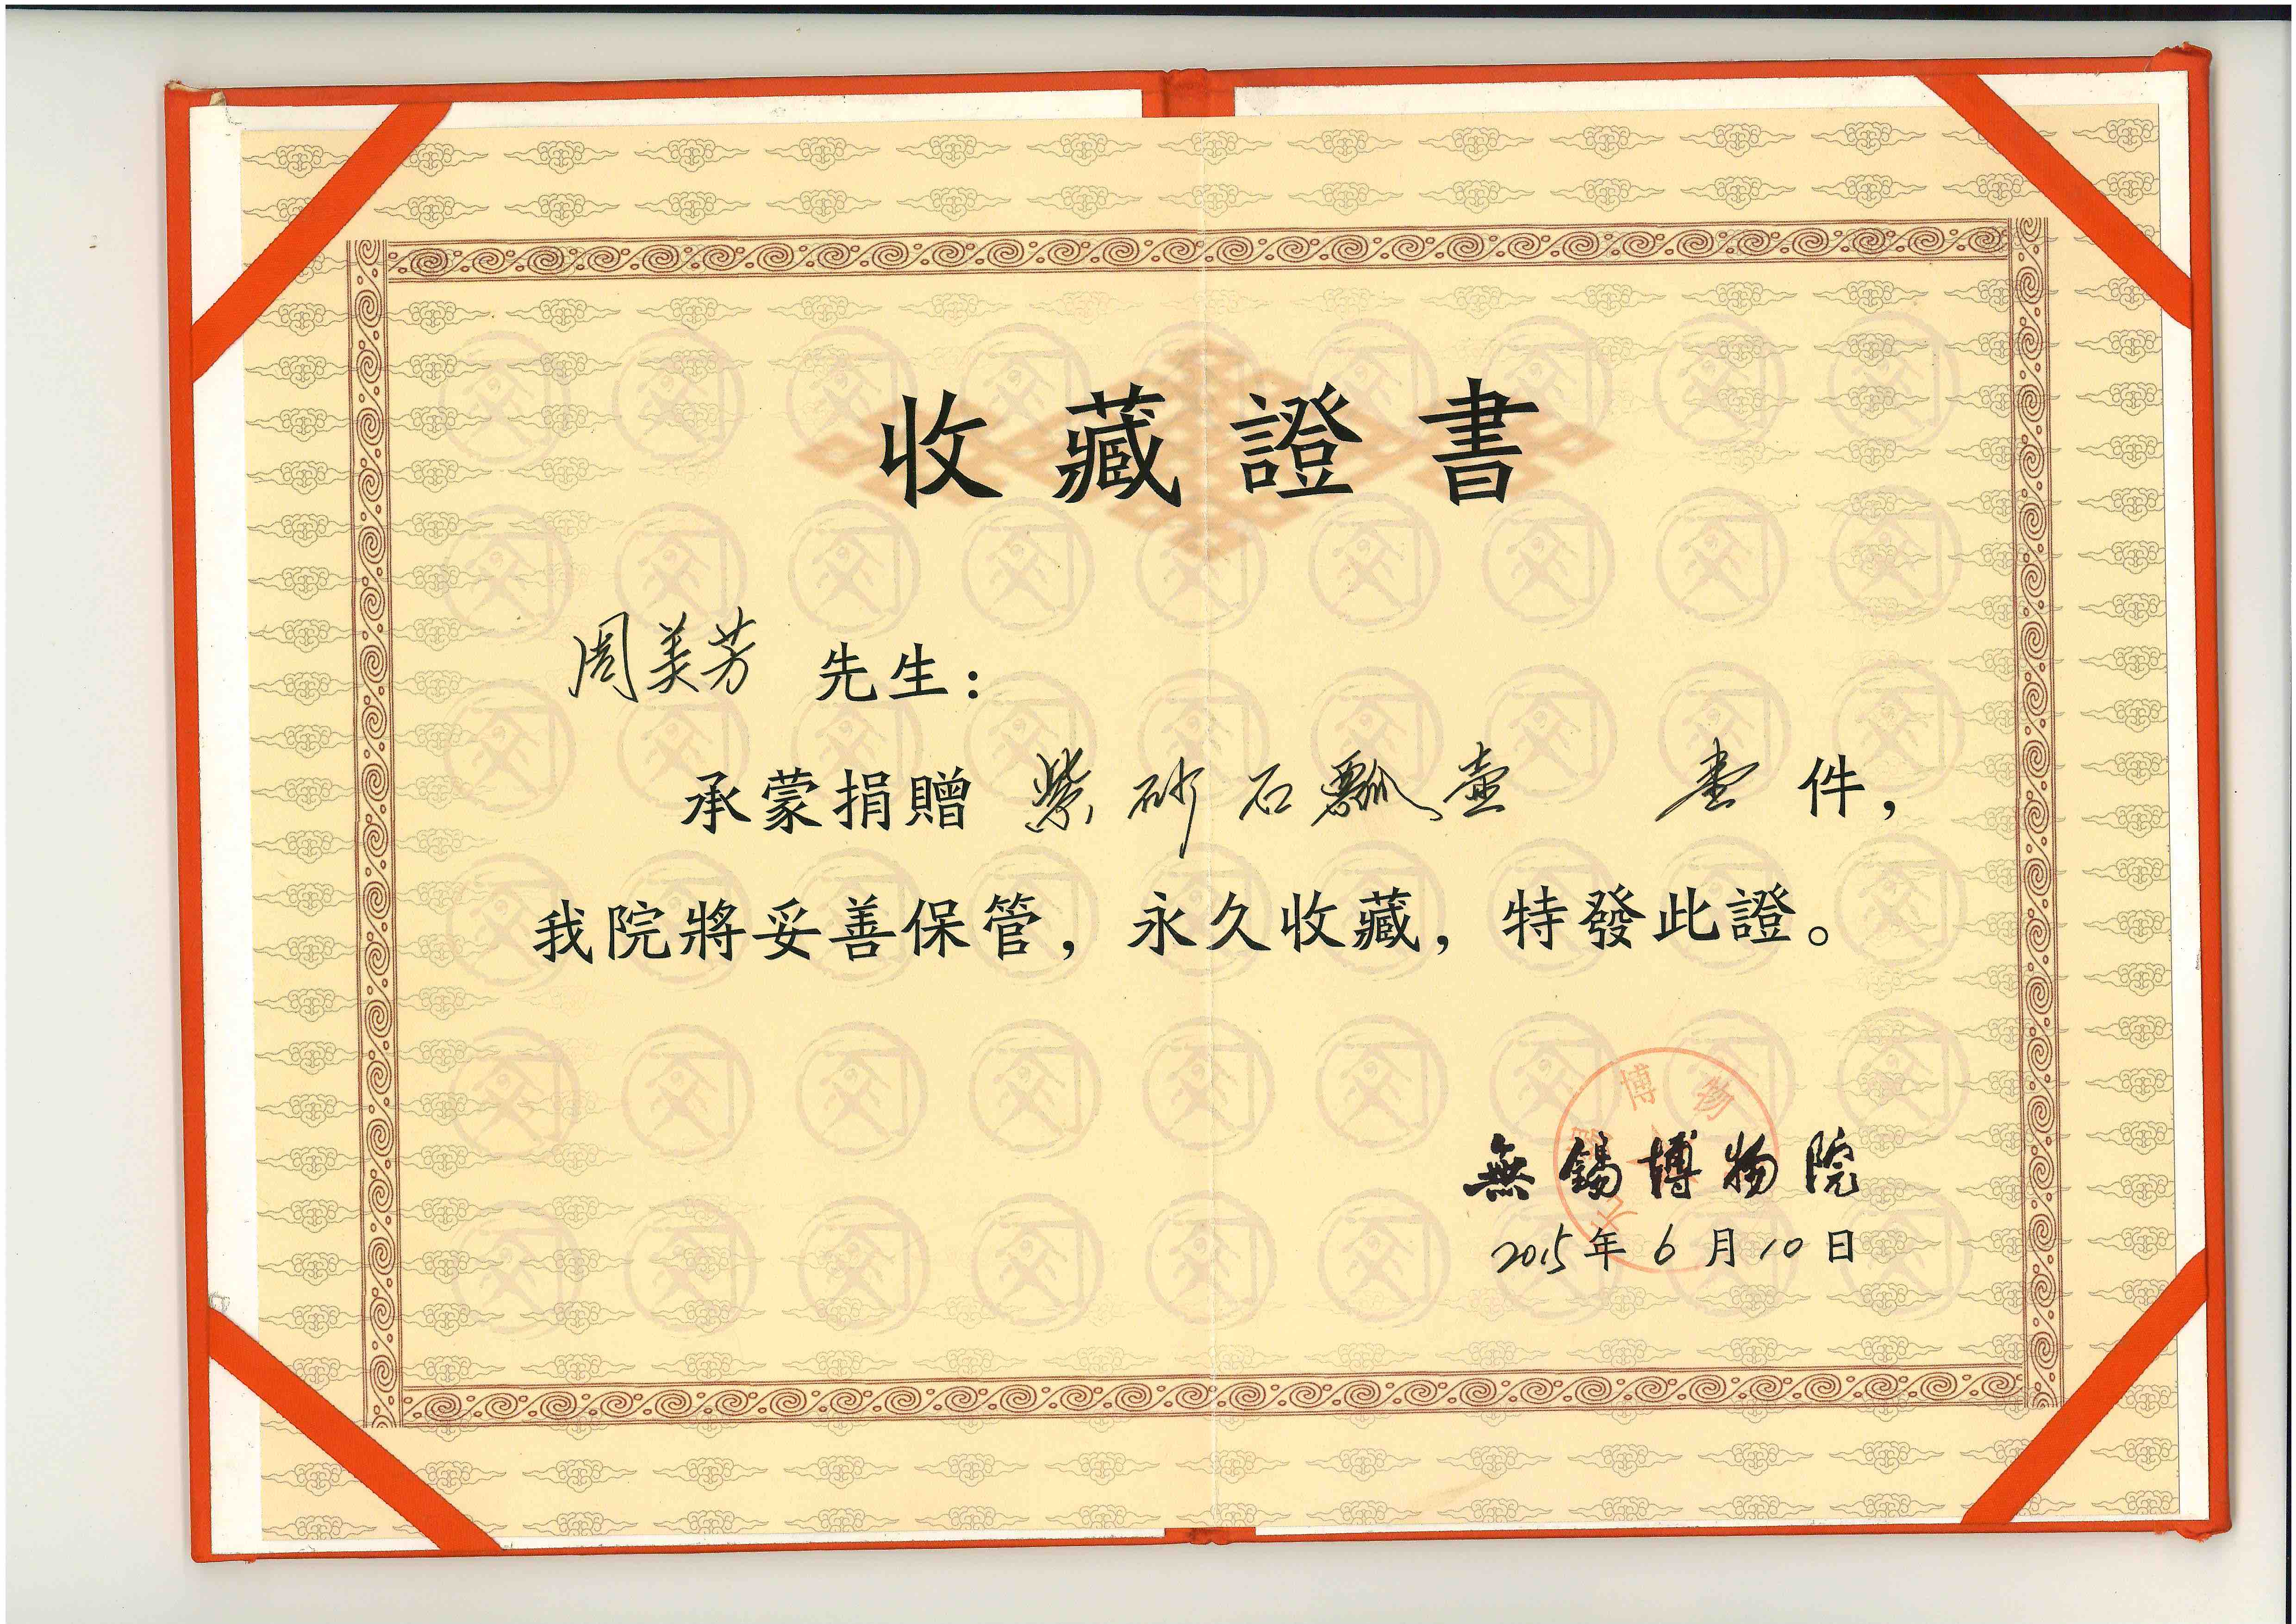 收藏證書
周美芳 先生：
承蒙捐贈 紫砂石瓢壺 壹件，
我院將妥善保管，永久收藏，特發此證。
無錫博物院
2015年6月10日